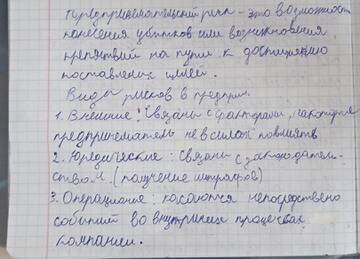 Предпринимательский риск – это возможность
понесения убытков или возникновения
препятствий на пути к достижению
поставленных целей.
Виды рисков в предприн.
1. Внешние: связаны с факторами, на которые
предприниматель не в силах повлиять
2. Юридические: связаны с законодатель
ством. (получение штрафов)
3. Операционные: касаются непосредствено
событий во внутриних процесах
компании.